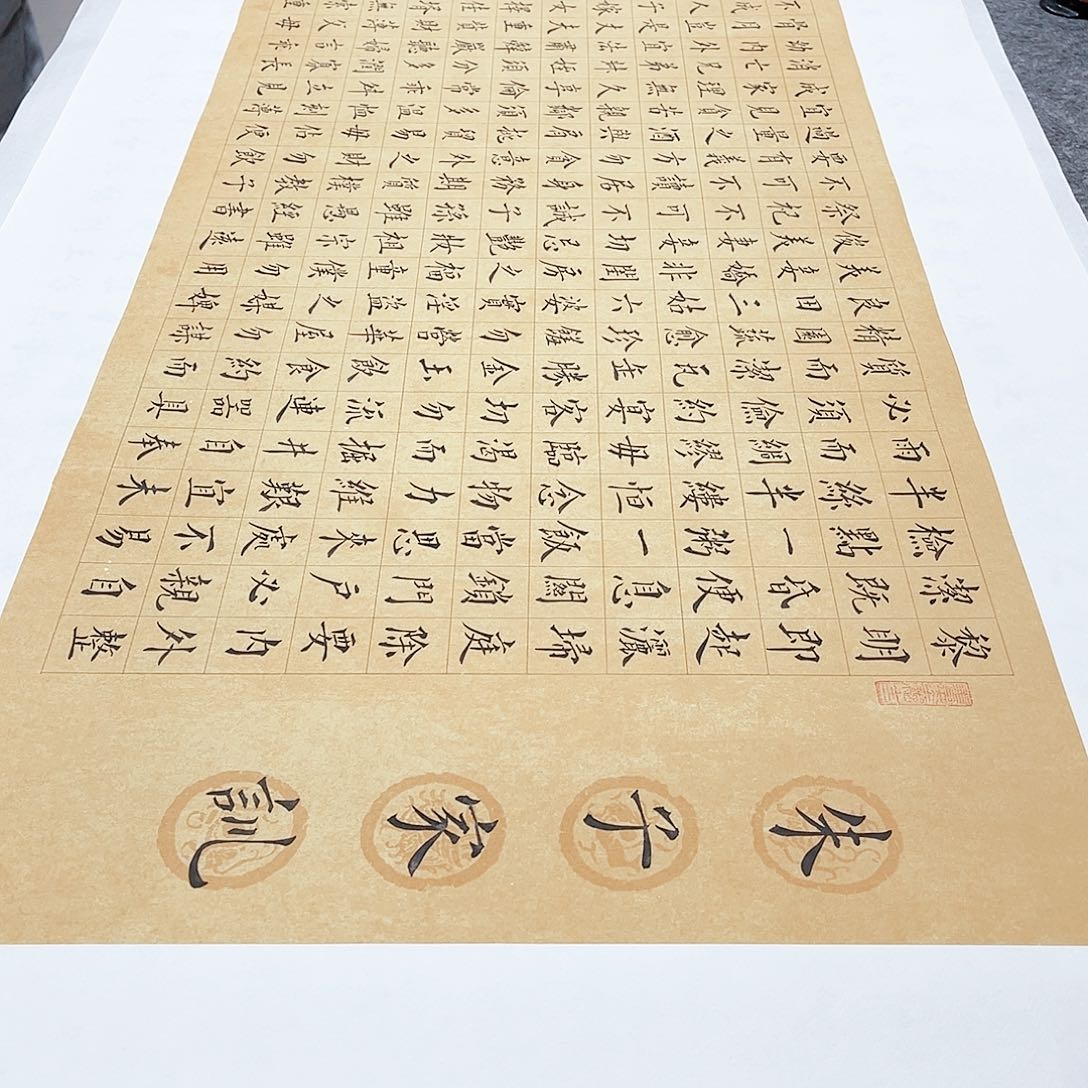 朱子家訓
黎明即起灑掃庭除要內外整
潔既昏便息關鎖門戶必親自
檢點一粥一飯當思來處不易
半絲半縷恒念物力維艱宜未
雨而綢繆毋臨渴而掘井自奉
必須儉約宴客切勿流連器具
質而潔瓦缶勝金玉飲食約而
精園蔬愈珍饈勿營華屋勿謀
良田三姑六婆實淫盜之媒婢
美妾嬌非閨房之福童僕勿用
俊美妻妾切忌艷妝祖宗雖遠
祭祀不可不誠子孫雖愚經書
不可不讀居身務期質樸教子
要有義方勿貪意外之財勿飲
過量之酒與肩挑貿易毋佔便
宜見貧苦親鄰須多溫恤刻薄
成家理無久享倫常乖舛立見
消亡兄弟叔姪須分多潤寡長
幼內外宜法肅辭嚴聽婦言乖
骨肉豈是丈夫重貲財薄父母
不成人子嫁女擇佳婿毋索重